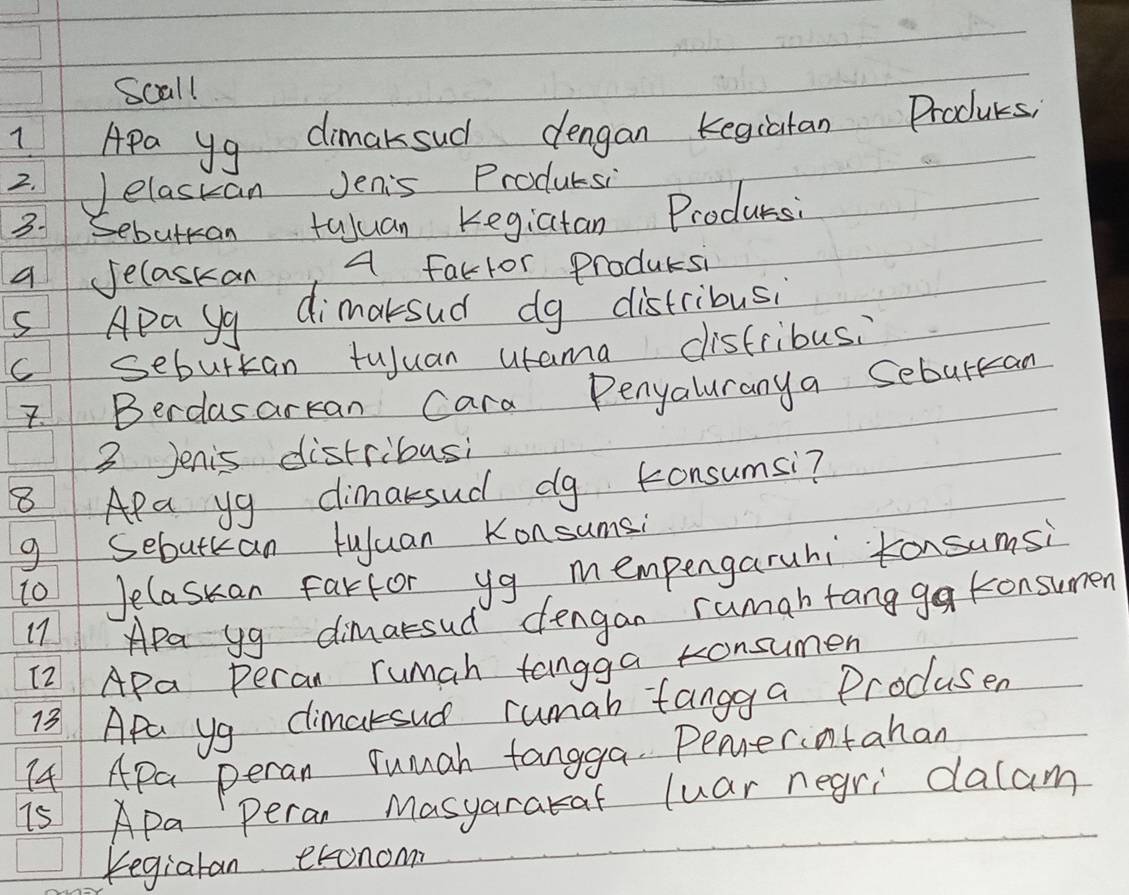 Soal!
1. Apa yg dimaksud dengan kegiatan Produksi
2. Jelaskan Jenis Produksi
3. Sebutkan tujuan kegiatan Produksi
4 Jelaskan 4 faktor produksi
5 Apa yg dimaksud dg distribusi
6 Sebutkan tujuan utama distribusi
7. Berdasarkan Cara Penyaluranya Sebutkan
3 Jenis distribusi
8 Apa yg dimaksud dg konsumsi?
9 Sebutkan tujuan konsumsi
10 Jelaskan faktor yg mempengaruhi konsumsi
11 Apa yg dimaksud dengan rumah tangga konsumen
12 Apa peran rumah tangga konsumen
13 Apa yg dimaksud rumah tangga Produsen
14 Apa peran rumah tangga Pemerintahan
15 Apa Peran Masyarakat luar negri dalam
kegiatan ekonomi